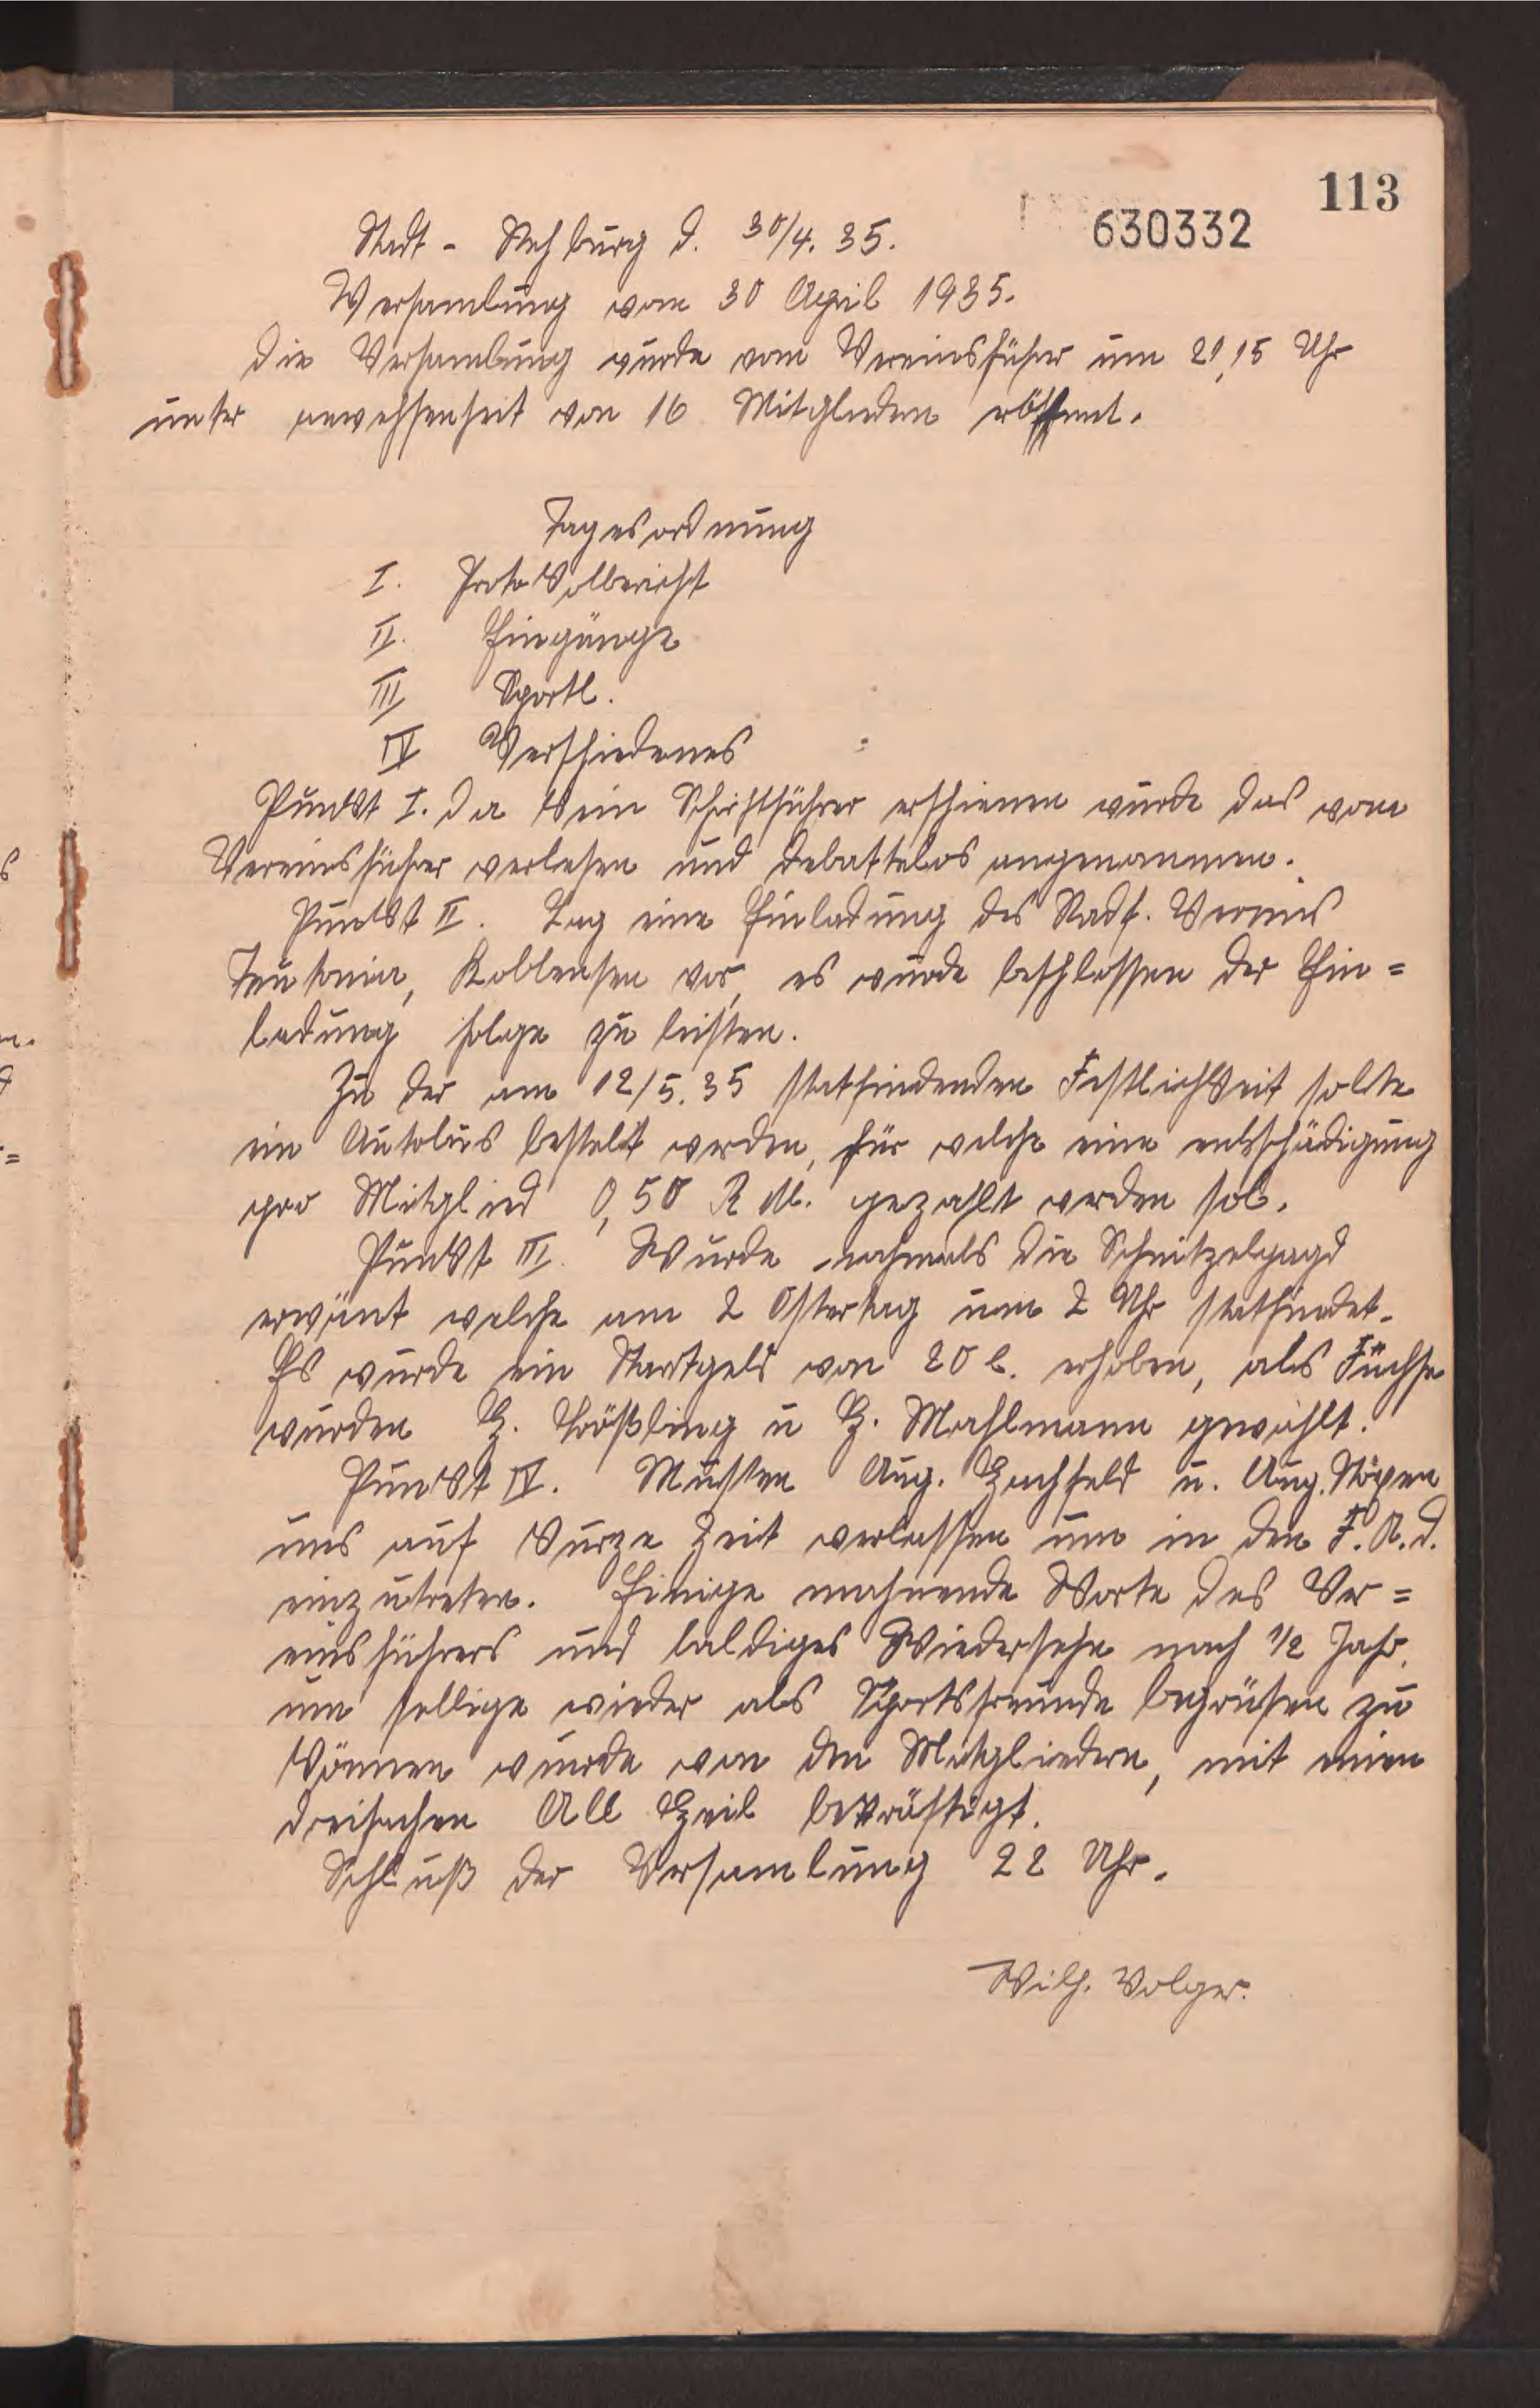 113
630332
Stadt - Rehburg d. 30/4. 35.
Versamlung vom 30 April 1935.
Die Versamlung wurde vom Vereinsführer um 21,15 Uhr
unter anwehsenheit von 16 Mitgliedern eröffnet.
Tagesordnung
I. Protokolbericht
II. Eingänge
III Sportl.
IV Verschiedenes
Punkt I. Da kein Schriftführer erschienen wurde das vom
Vereinsführer verlesen und debattelos angenommen.
Punkt II. Lag eine Einladung des Radf. Vereins
Teutonia, Kollensen vor, es wurde beschlossen der Ein=
ladung folge zu leisten.
Zu der am 12/5. 35 statfindenden Festlichkeit solte
ein Autobus bestelt werden, für welche eine entschädigung
pro Mitglied 0,50 R M. gezahlt werden sol.
Punkt III. Wurde nochmals die Schnitzelgagd
erwänt welche am 2 Ostertag um 2 Uhr statfindet.
Es wurde ein Startgeld von 20 erhoben, als Füchse
wurden H. u H. Mahlmann gewählt.
Punkt IV. Musten Aug. u. Aug.
uns auf kurze Zeit verlassen um in den F. A. d.
einzutreten. Einige mahnende Worte des Ver=
einsführers und baldiges Wiedersehn nach 1/2 Jahr.
um sellige wieder als Sportsfreunde begrüsen zu
können wurde von den Mitgliedern, mit einen
dreifachen All Heil bekräftigt.
Schluß der Versamlung 22 Uhr.
Wilh. Volger.